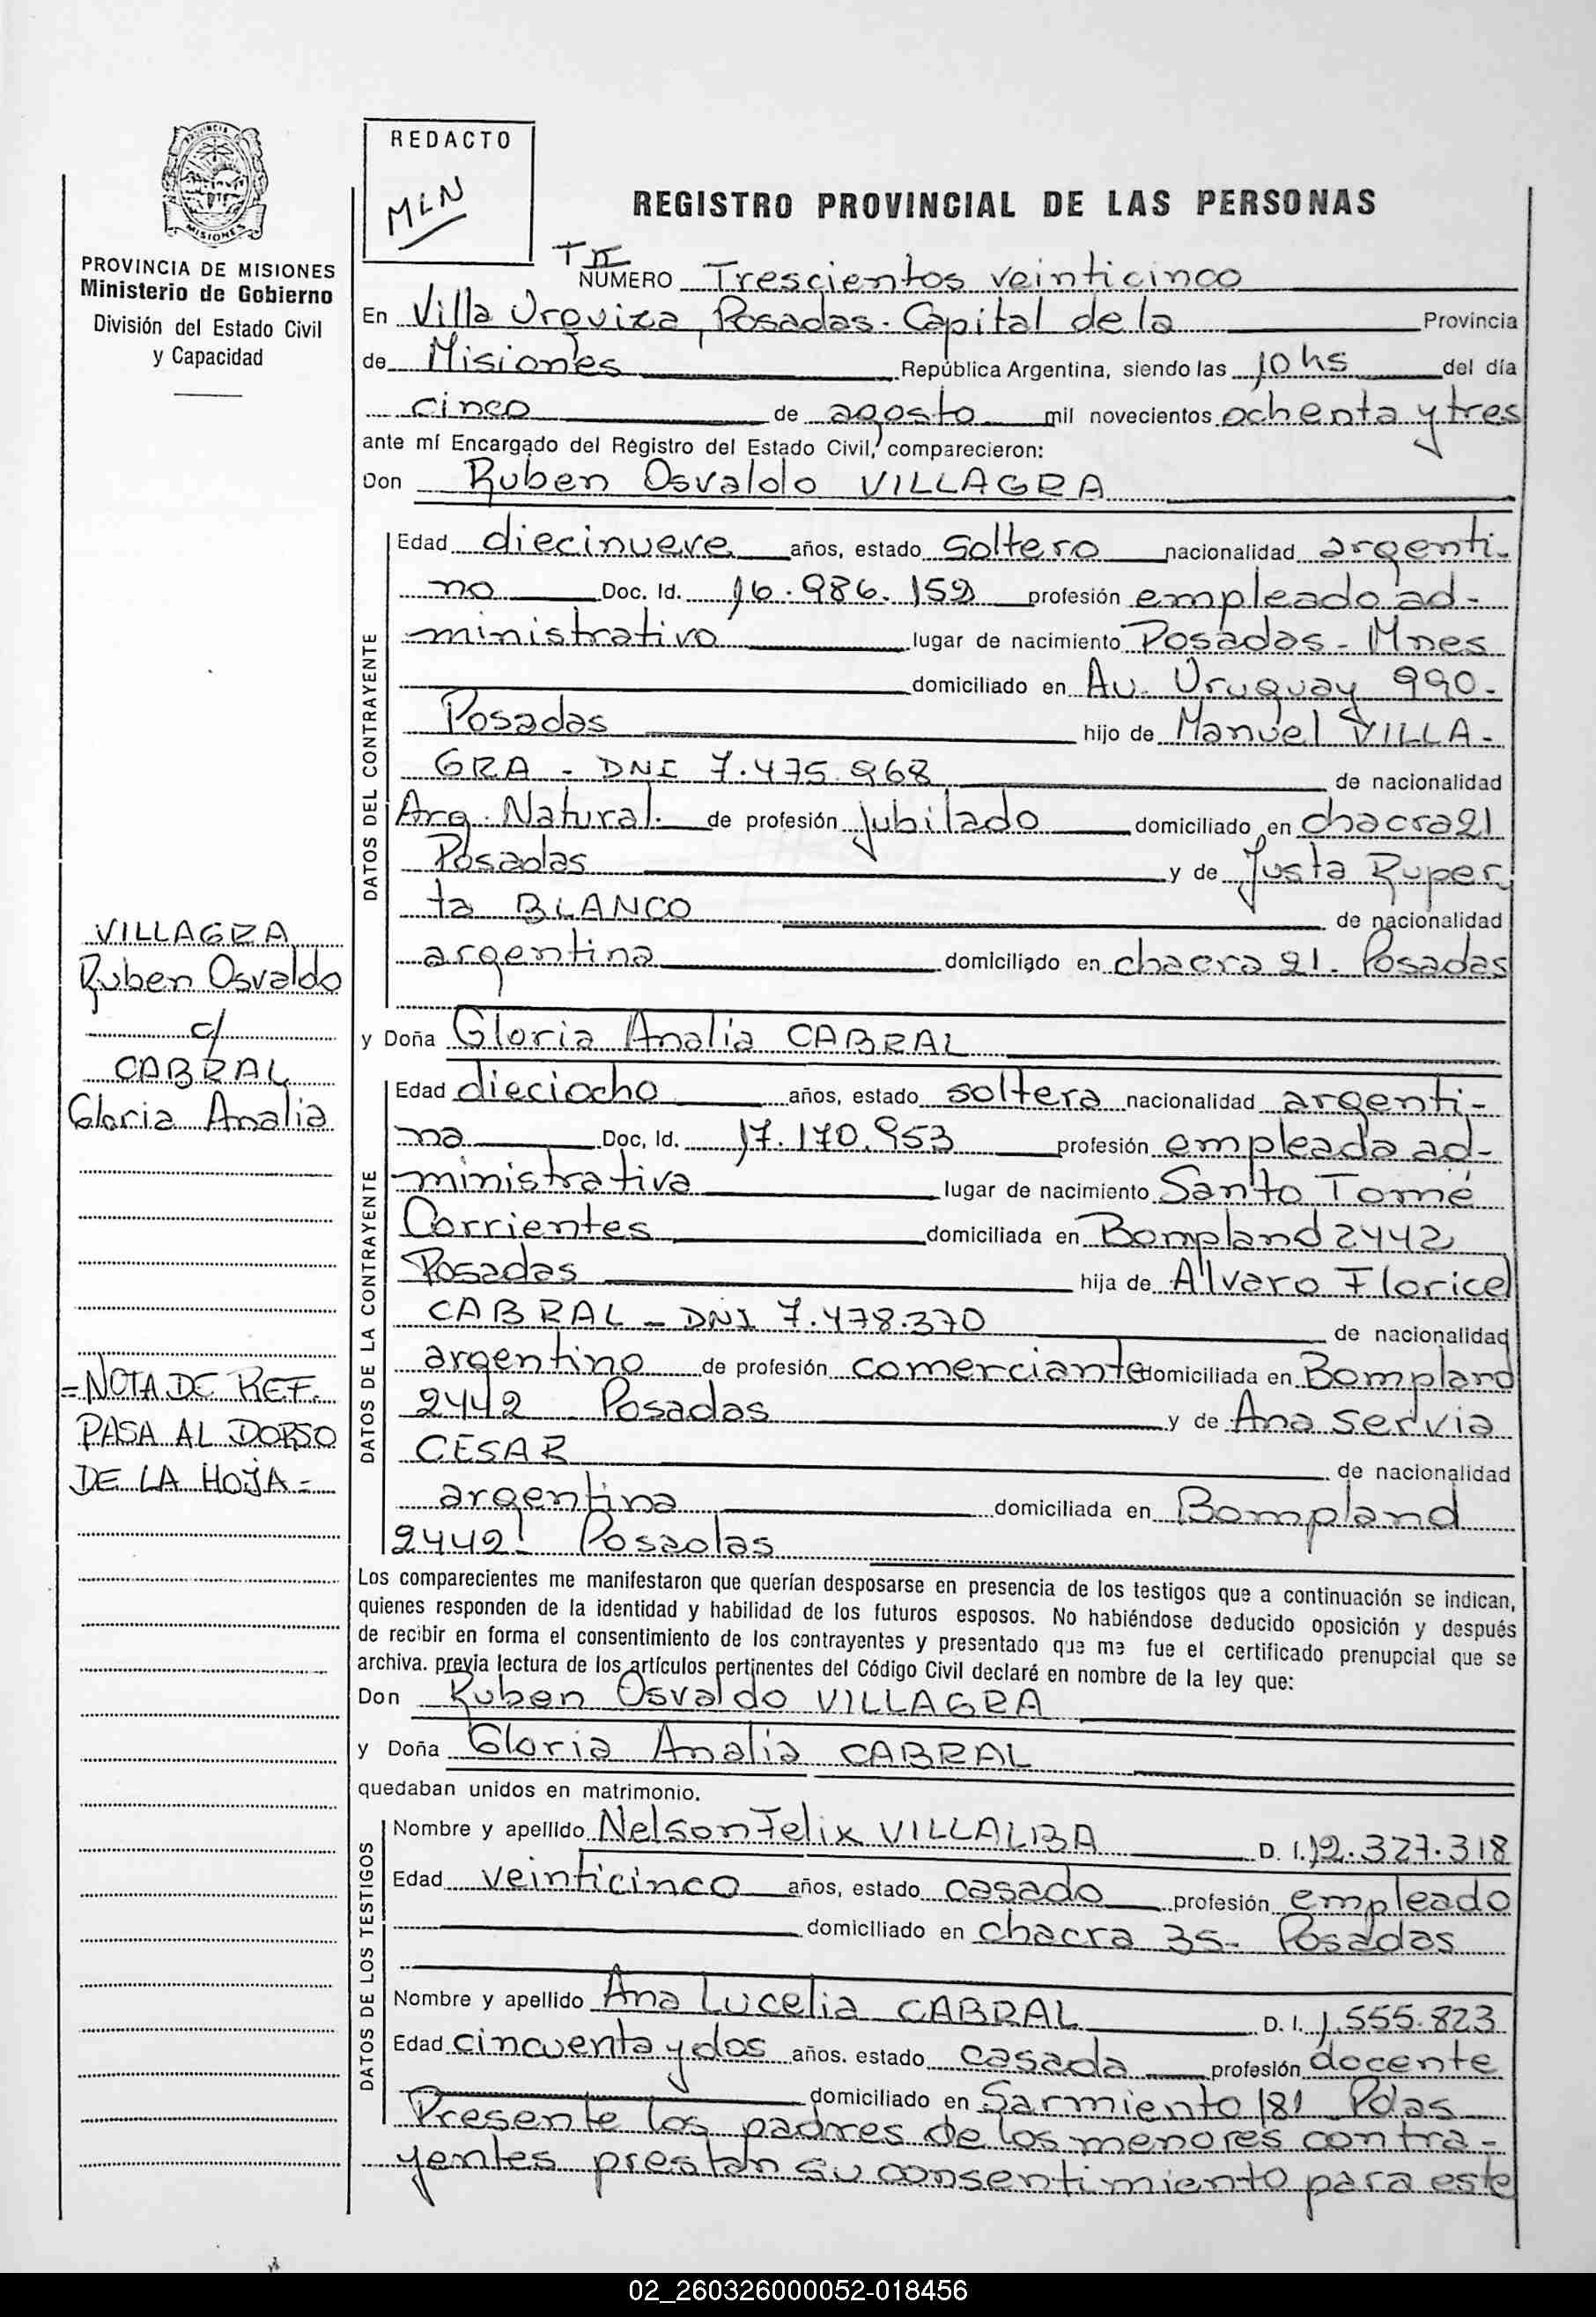 REDACTO
MLN
PROVINCIA DE MISIONES
MISIONES
PROVINCIA DE MISIONES
Ministerio de Gobierno
División del Estado Civil
y Capacidad
REGISTRO PROVINCIAL DE LAS PERSONAS
T II
NUMERO Trescientos veinticinco
En Villa Urquiza, Posadas. Capital de la Provincia
de Misiones República Argentina, siendo las 10 hs del día
cinco de agosto mil novecientos ochenta y tres
ante mí Encargado del Registro del Estado Civil, comparecieron:
Don Ruben Osvaldo VILLAGRA
DATOS DEL CONTRAYENTE
Edad diecinueve años, estado soltero nacionalidad argenti-
no Doc. Id. 16.986.152 profesión empleado ad-
ministrativo lugar de nacimiento Posadas - Mnes
domiciliado en Av. Uruguay 990.
Posadas hijo de Manuel VILLA-
GRA - DNI 7.475.968 de nacionalidad
Arg. Natural. de profesión jubilado domiciliado en chacra 21
Posadas y de Justa Ruper
ta BLANCO de nacionalidad
argentina domiciliado en chacra 21. Posadas
y Doña Gloria Analia CABRAL
DATOS DE LA CONTRAYENTE
Edad dieciocho años, estado soltera nacionalidad argenti-
na Doc. Id. 17.170.953 profesión empleada ad-
ministrativa lugar de nacimiento Santo Tomé
Corrientes domiciliada en Bompland 2442
Posadas hija de Alvaro Floricel
CABRAL - DNI 7.478.370 de nacionalidad
argentino de profesión comerciante domiciliada en Bompland
2442 Posadas y de Ana Servia
CESAR de nacionalidad
argentina domiciliada en Bompland
2442. Posadas
Los comparecientes me manifestaron que querían desposarse en presencia de los testigos que a continuación se indican,
quienes responden de la identidad y habilidad de los futuros esposos. No habiéndose deducido oposición y después
de recibir en forma el consentimiento de los contrayentes y presentado que me fue el certificado prenupcial que se
archiva. previa lectura de los artículos pertinentes del Código Civil declaré en nombre de la ley que:
Don Ruben Osvaldo VILLAGRA
y Doña Gloria Analia CABRAL
quedaban unidos en matrimonio.
DATOS DE LOS TESTIGOS
Nombre y apellido Nelson Felix VILLALBA D. I. 12.327.318
Edad veinticinco años, estado casado profesión empleado
domiciliado en chacra 35- Posadas
Nombre y apellido Ana Lucelia CABRAL D. I. 1.555.823
Edad cincuenta y dos años. estado casada profesión docente
domiciliado en Sarmiento 181 Pdas
Presente los padres de los menores contra-
yentes prestan su consentimiento para este
VILLAGRA
Ruben Osvaldo
c/
CABRAL
Gloria Analia
=NOTA DE REF.
PASA AL DORSO
DE LA HOJA=
02_260326000052-018456